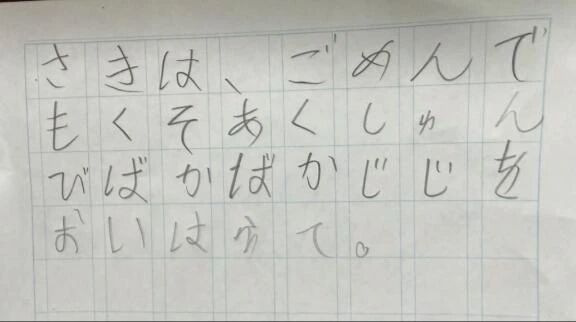 さきは、ごめんで
もくそあくしゅん
びばかばかじじを
おいはらて。